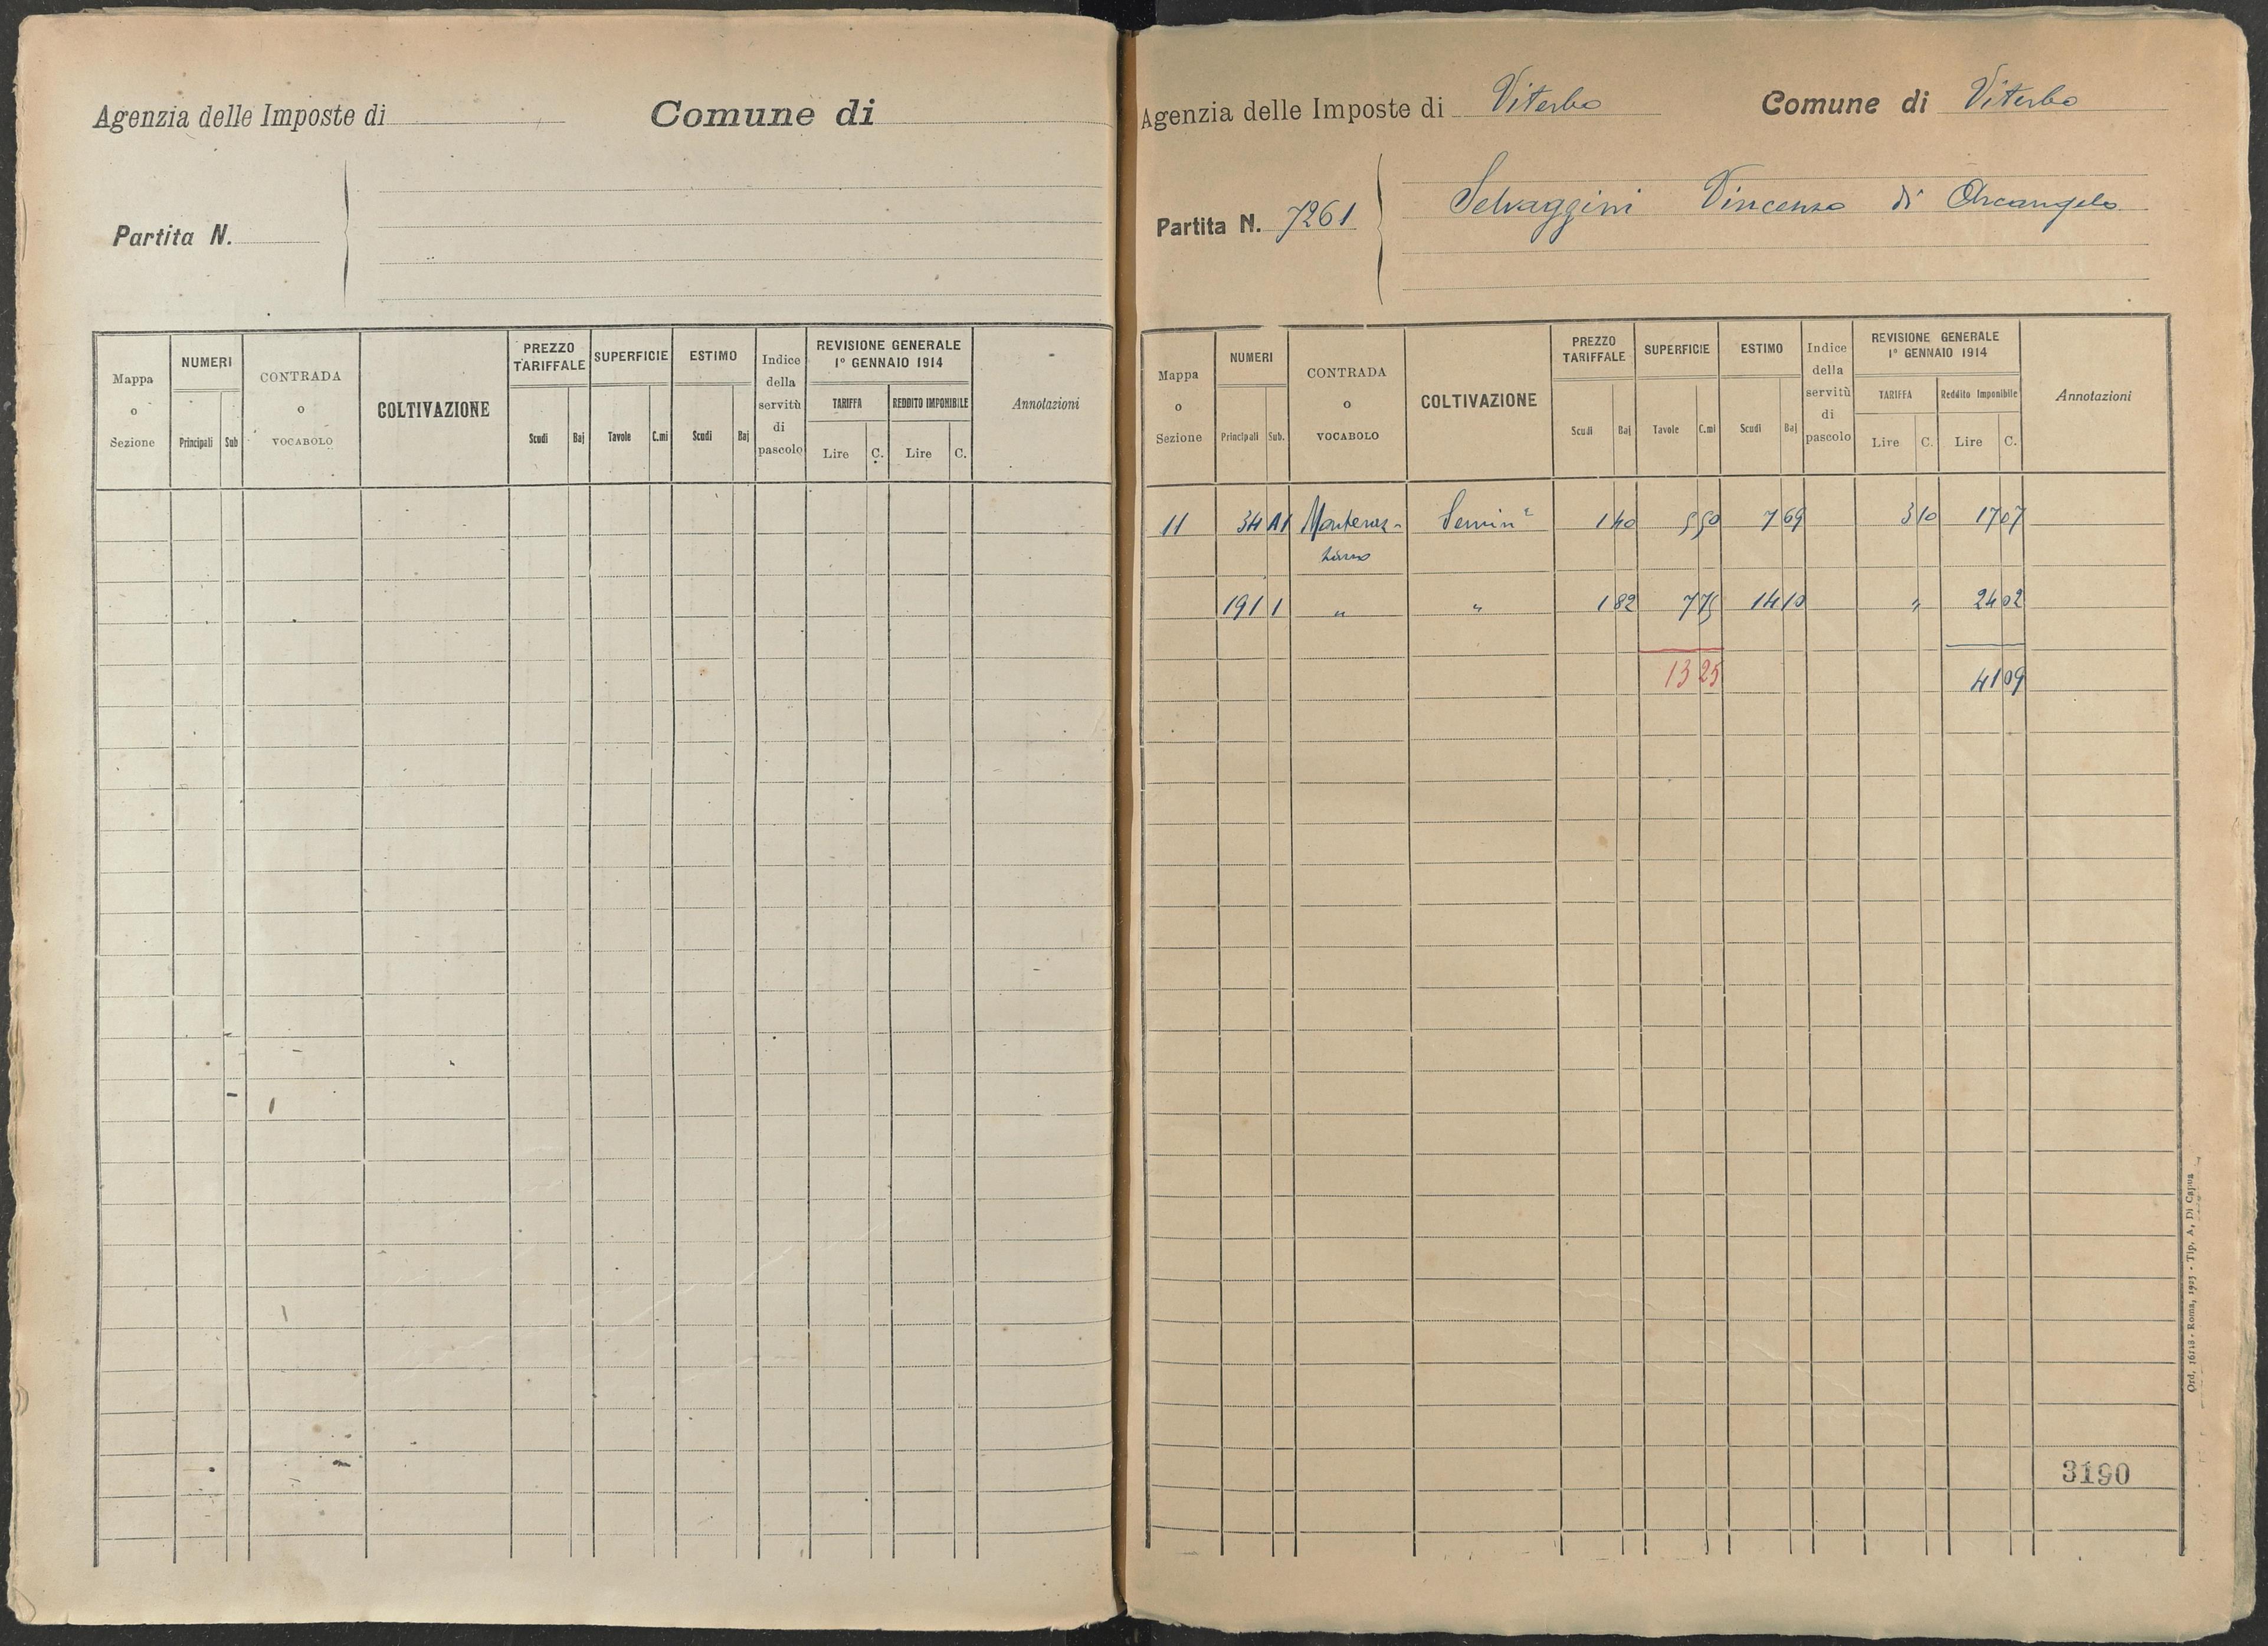 Agenzia delle Imposte di Comune di
Partita N.
Mappa o Sezione NUMERI Principali Sub CONTRADA o VOCABOLO COLTIVAZIONE PREZZO TARIFFALE Scudi Baj SUPERFICIE Tavole C.mi ESTIMO Scudi Baj Indice della servitù di pascolo REVISIONE GENERALE 1° GENNAIO 1914 TARIFFA Lire C. REDDITO IMPONIBILE Lire C. Annotazioni
Agenzia delle Imposte di Viterbo Comune di Viterbo
Partita N. 7261 Selvaggini Vincenzo di Arcangelo
Mappa o Sezione NUMERI Principali Sub. CONTRADA o VOCABOLO COLTIVAZIONE PREZZO TARIFFALE Scudi Baj SUPERFICIE Tavole C.mi ESTIMO Scudi Baj Indice della servitù di pascolo REVISIONE GENERALE 1° GENNAIO 1914 TARIFFA Lire C. Reddito Imponibile Lire C. Annotazioni
11 34 A1 Semin° 1 40 5 50 7 69 3 10 17 07
191 1 " " 1 82 7 75 14 10 " 24 02
13 25 41 09
3190
Ord. 16118 - Roma, 1923 - Tip. A. Di Capua